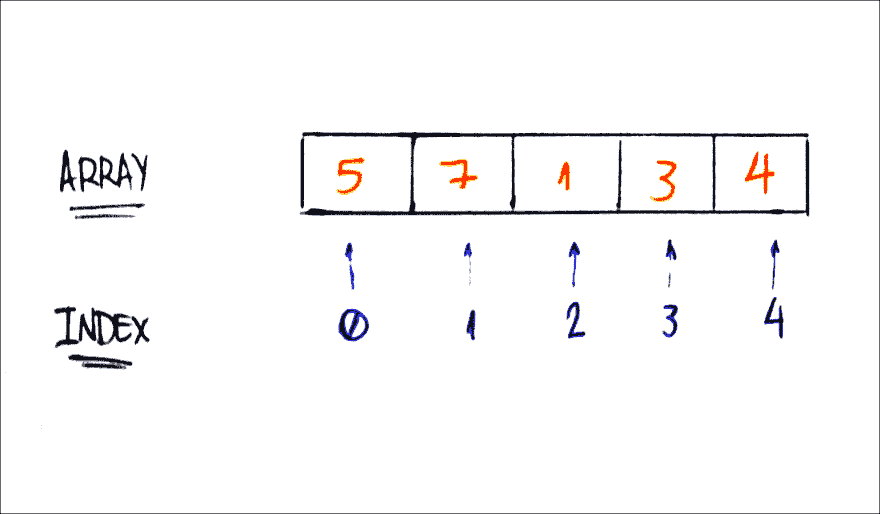 ARRAY 5 7 1 3 4
INDEX 0 1 2 3 4